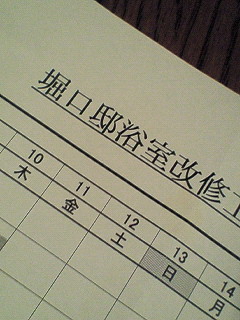 堀口邸浴室改修
10 11 12 13 14
木 金 土 日 月